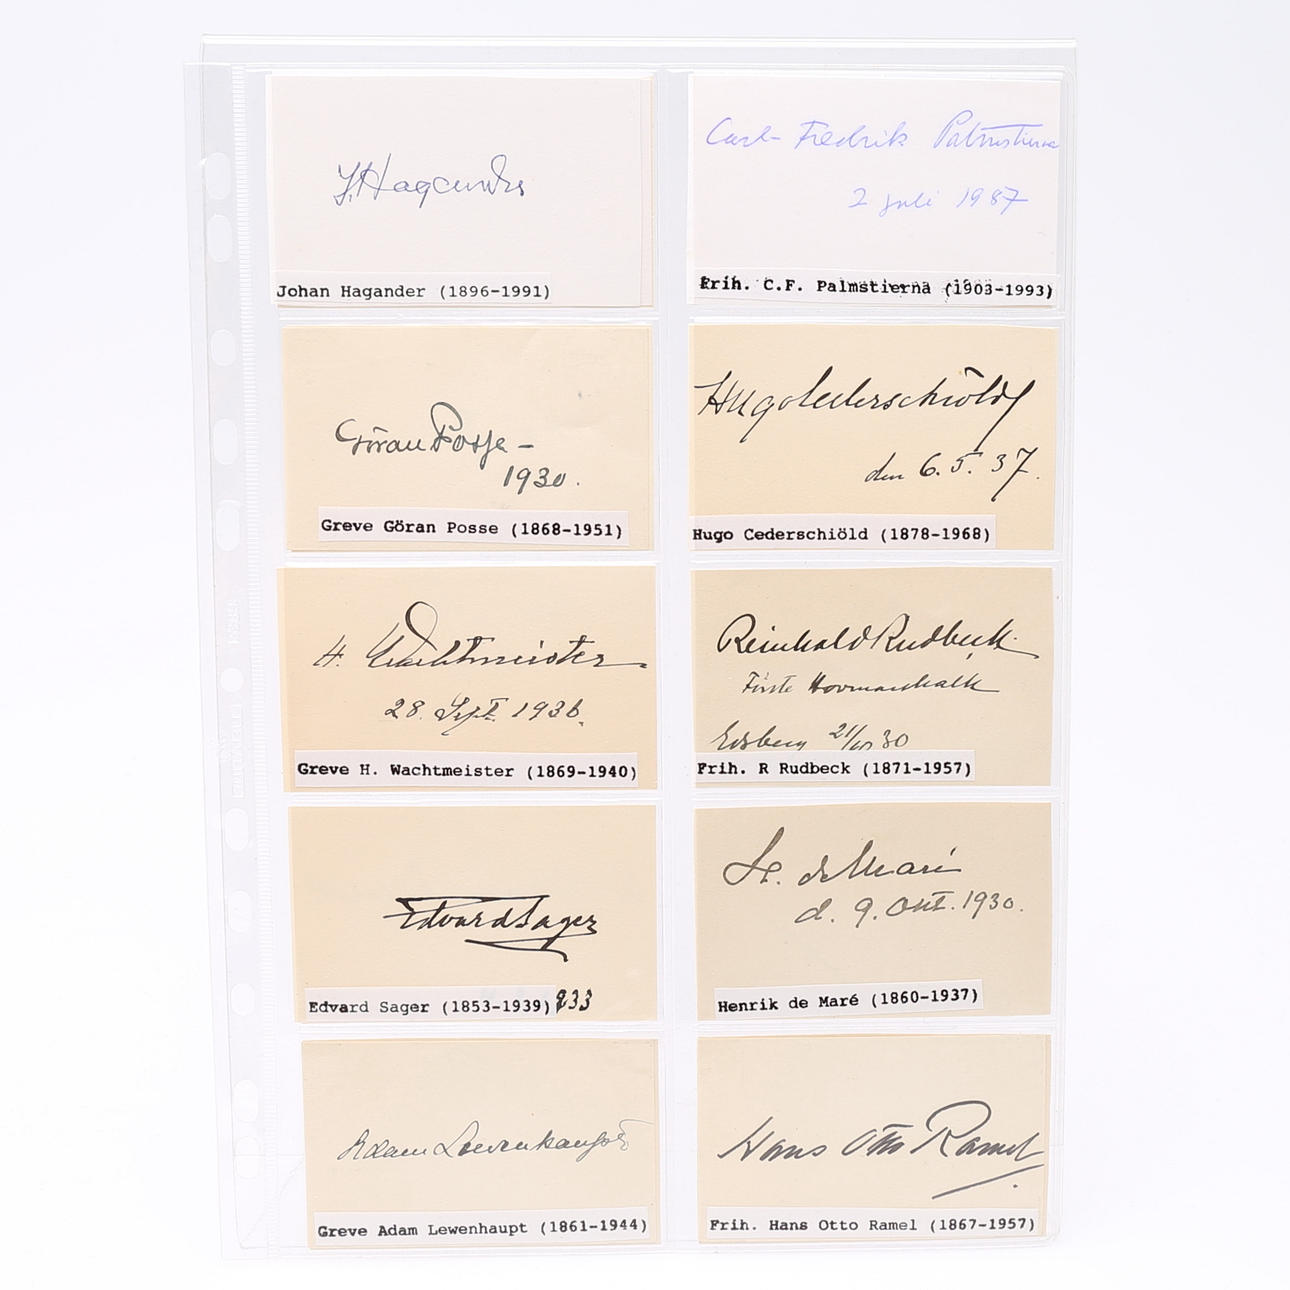 J. Hagander
Johan Hagander (1896-1991)
Carl-Fredrik Palmstierna
2 juli 1987
Frih. C.F. Palmstierna (1903-1993)
Göran Posse –
1930.
Greve Göran Posse (1868-1951)
Hugo Cederschiöld
den 6.5.37.
Hugo Cederschiöld (1878-1968)
H. Wachtmeister
28. Sept. 1936.
Greve H. Wachtmeister (1869-1940)
Reinhold Rudbeck.
Förste Hovmarskalk
Edsberg 30
Frih. R Rudbeck (1871-1957)
Edvard Sager
933
Edvard Sager (1853-1939)
H. de Maré
d. 9. Okt. 1930.
Henrik de Maré (1860-1937)
Adam Lewenhaupt
Greve Adam Lewenhaupt (1861-1944)
Hans Otto Ramel
Frih. Hans Otto Ramel (1867-1957)